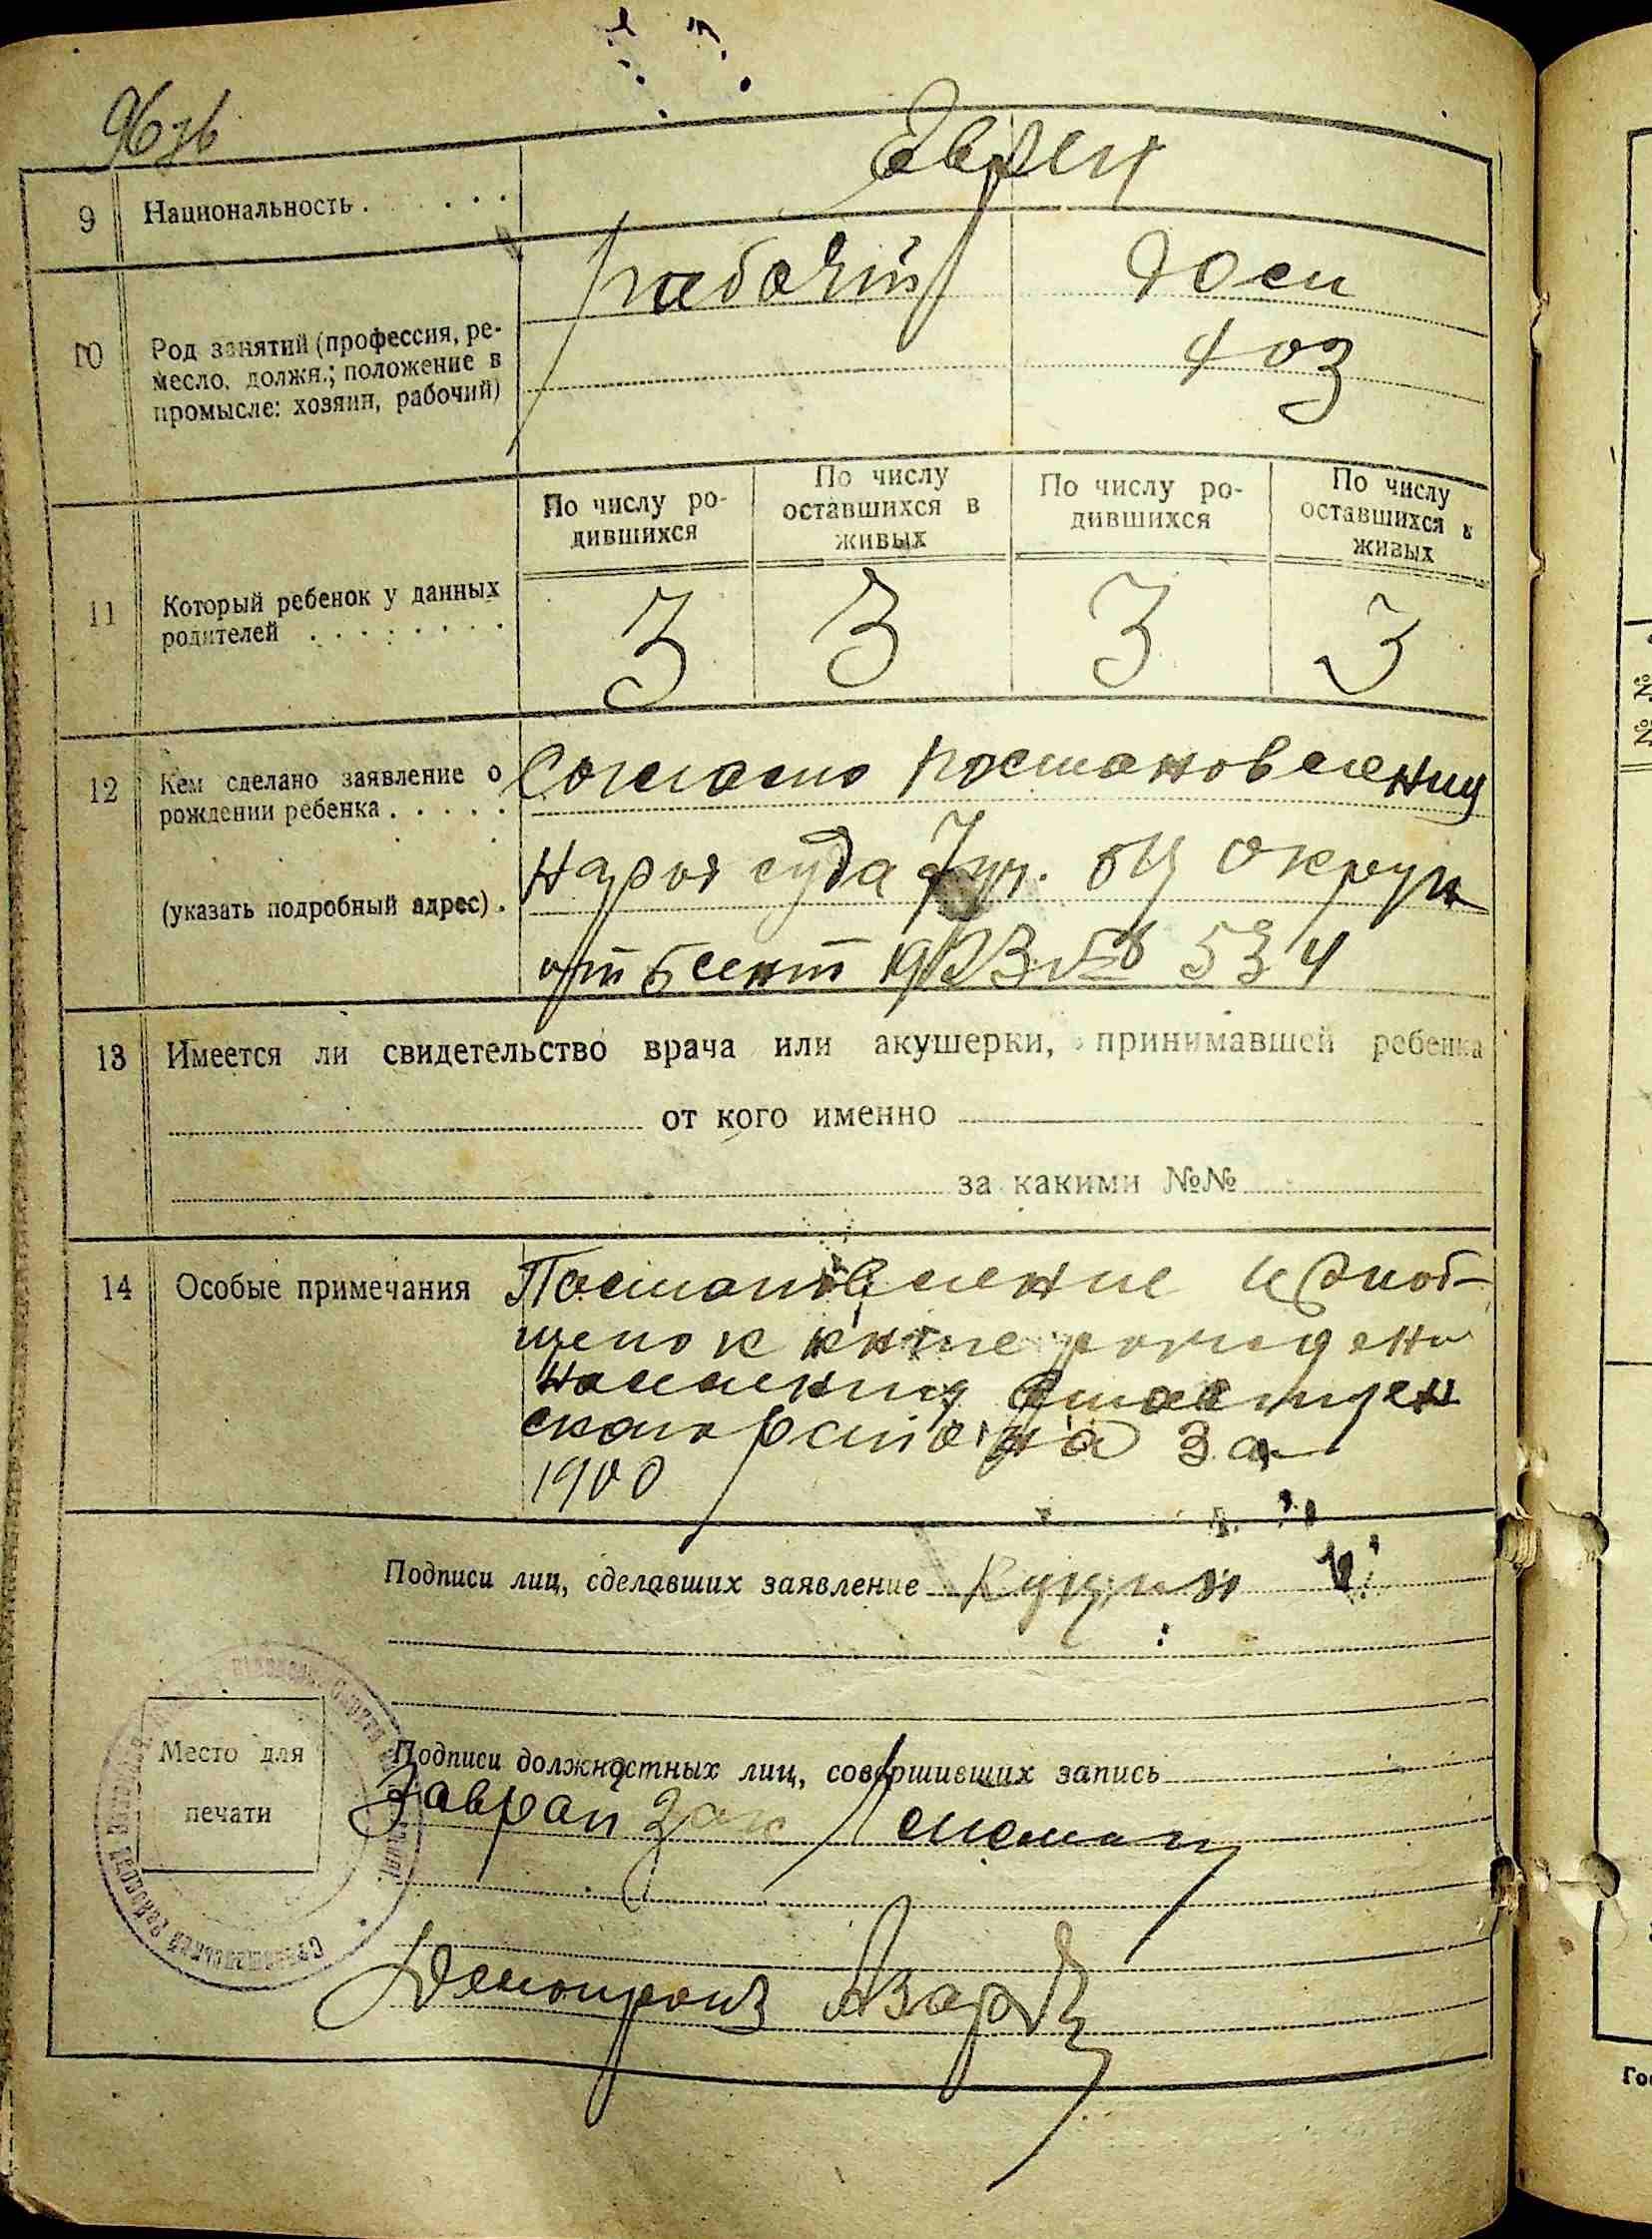 9 Национальность . . . . . . Евреи
10 Род занятий (профессия, ре-
месло, должн.; положение в
промысле: хозяин, рабочий)
рабочий
дом
хоз
11 Который ребенок у данных
родителей . . . . . . . .
По числу ро-
дившихся
По числу
оставшихся в
живых
По числу ро-
дившихся
По числу
оставшихся в
живых
3 3 3 3
12 Кем сделано заявление о
рождении ребенка . . . . .
(указать подробный адрес) .
Согласно постановлению
Нарсуда 7 уч. округи
от 5 сент 1923 № 534
13 Имеется ли свидетельство врача или акушерки, принимавшей ребенка
от кого именно
за какими №№
14 Особые примечания
Постановление приоб-
щено к книге рождени
населения
ского за
1900
Подписи лиц, сделавших заявление
Место для
печати
Подписи должностных лиц, совершивших запись
Завран Загс
Делопроиз